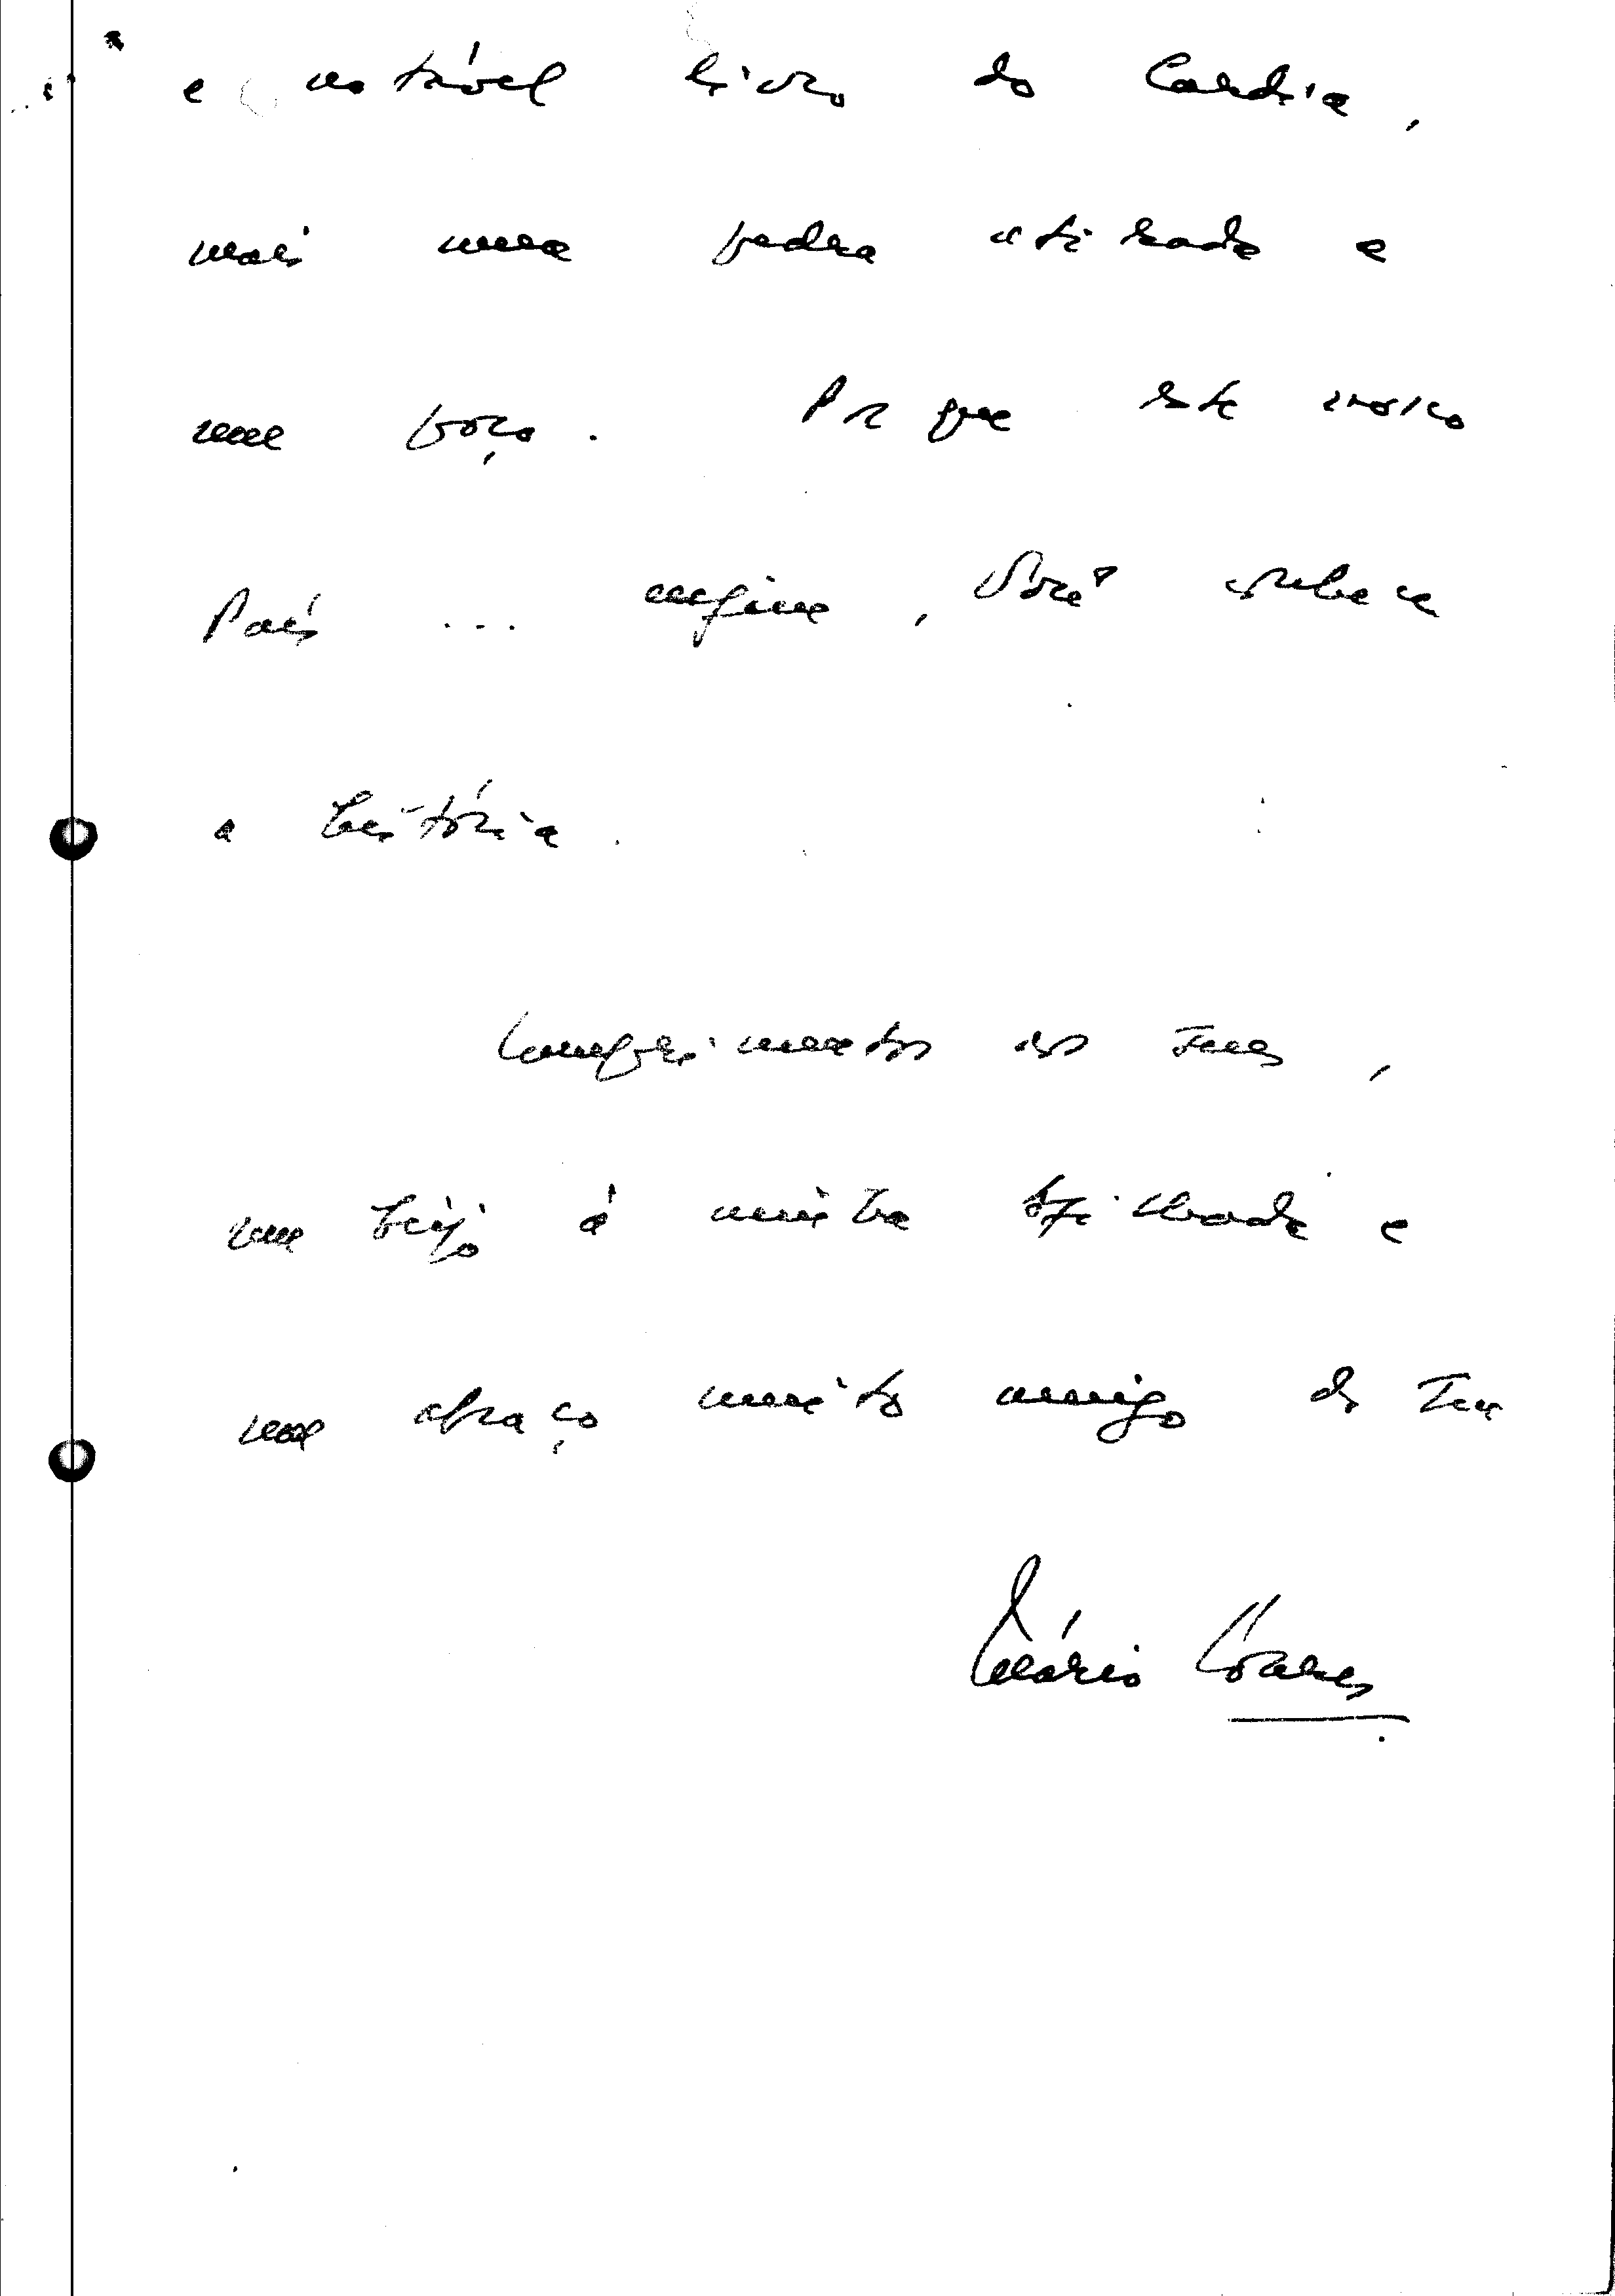 e notável livro do Cardia,
mais uma pedra atirada a
um poço. Por que este nosso
País ... enfim, Você conhece
a história.
Cumprimentos aos Teus,
um beijo à minha afilhada e
um abraço muito amigo do Teu
Mário Soares